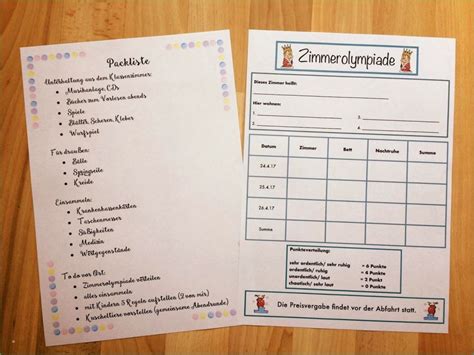 Packliste
Unterhaltung aus dem Klassenzimmer:
Musikanlage, CDs
Bücher zum Vorlesen abends
Spiele
Blätter, Scheren, Kleber
Wurfspiel
Für draußen:
Bälle
Springseile
Kreide
Einsammeln:
Krankenkassenkarten
Taschenmesser
Süßigkeiten
Medizin
Wertgegenstände
To do vor Ort:
Zimmerolympiade verteilen
alles einsammeln
mit Kindern 5 Regeln aufstellen (2 von mir)
Kuscheltiere vorstellen (gemeinsame Abendrunde)
Zimmerolympiade
Dieses Zimmer heißt:
Hier wohnen:
Datum Zimmer Bett Nachtruhe Summe
24.4.17
25.4.17
26.4.17
Summe
Punkteverteilung:
sehr ordentlich/ sehr ruhig = 6 Punkte
ordentlich/ ruhig = 4 Punkte
unordentlich/ laut = 2 Punkte
chaotisch/ sehr laut = 0 Punkte
Die Preisvergabe findet vor der Abfahrt statt.